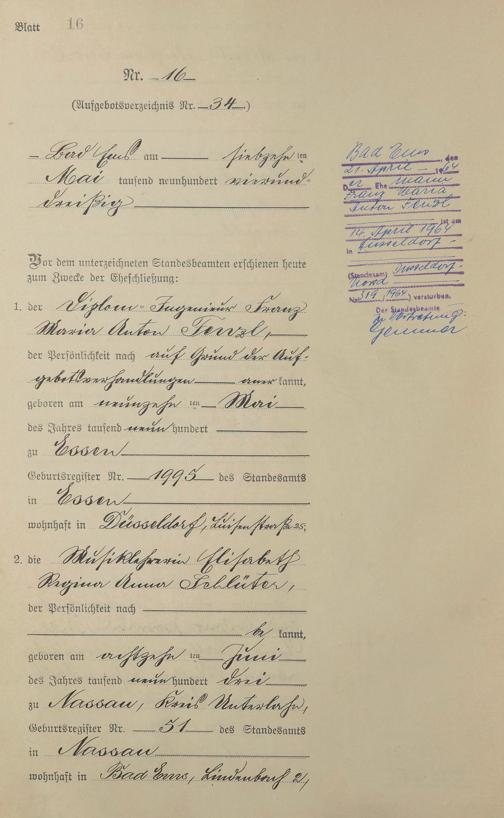 Blatt 16
Nr. 16
(Aufgebotsverzeichnis Nr. 34.)
Bad Ems am siebzehn ten
Mai tausend neunhundert vierund
dreißig
Vor dem unterzeichneten Standesbeamten erschienen heute
zum Zwecke der Eheschließung:
1. der Diplom-Ingenieur Franz
Maria Anton Fenzl,
der Persönlichkeit nach auf Grund der Auf-
gebotsverhandlungen aner kannt,
geboren am neunzehn ten Mai
des Jahres tausend neun hundert
zu Essen
Geburtsregister Nr. 1995 des Standesamts
in Essen
wohnhaft in Düsseldorf, Luisenstraße
2. die Musiklehrerin Elisabeth
Regina Anna Schlüter,
der Persönlichkeit nach
be kannt,
geboren am achtzehn ten Juni
des Jahres tausend neun hundert drei
zu Nassau, Kreis Unterlahn,
Geburtsregister Nr. 51 des Standesamts
in Nassau
wohnhaft in Bad Ems, Lindenbach 2,
Bad Ems, den
21. April 1964
Der Ehemann
Franz Maria
Anton Fenzl
ist am
14. April 1964
in Düsseldorf
(Standesamt Düsseldorf-
Nord
Nr. 1964) verstorben.
Der Standesbeamte
In Vertretung: